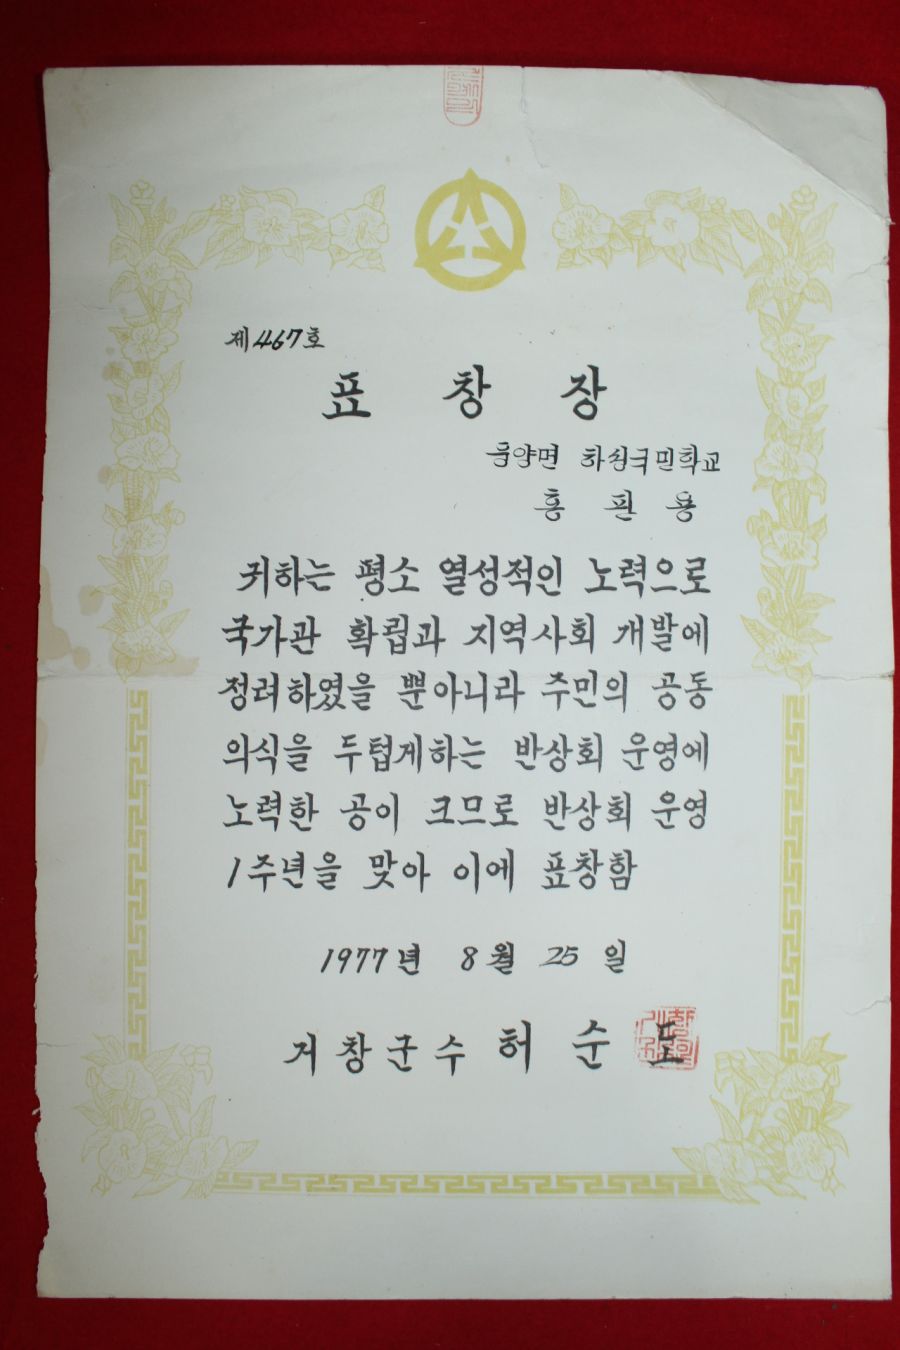 제467호
표 창 장
웅양면 하성국민학교
홍 판 용
귀하는 평소 열성적인 노력으로
국가관 확립과 지역사회 개발에
정려하였을 뿐아니라 주민의 공동
의식을 두텁게하는 반상회 운영에
노력한 공이 크므로 반상회 운영
1주년을 맞아 이에 표창함
1977년 8월 25일
거창군수 허 순 도